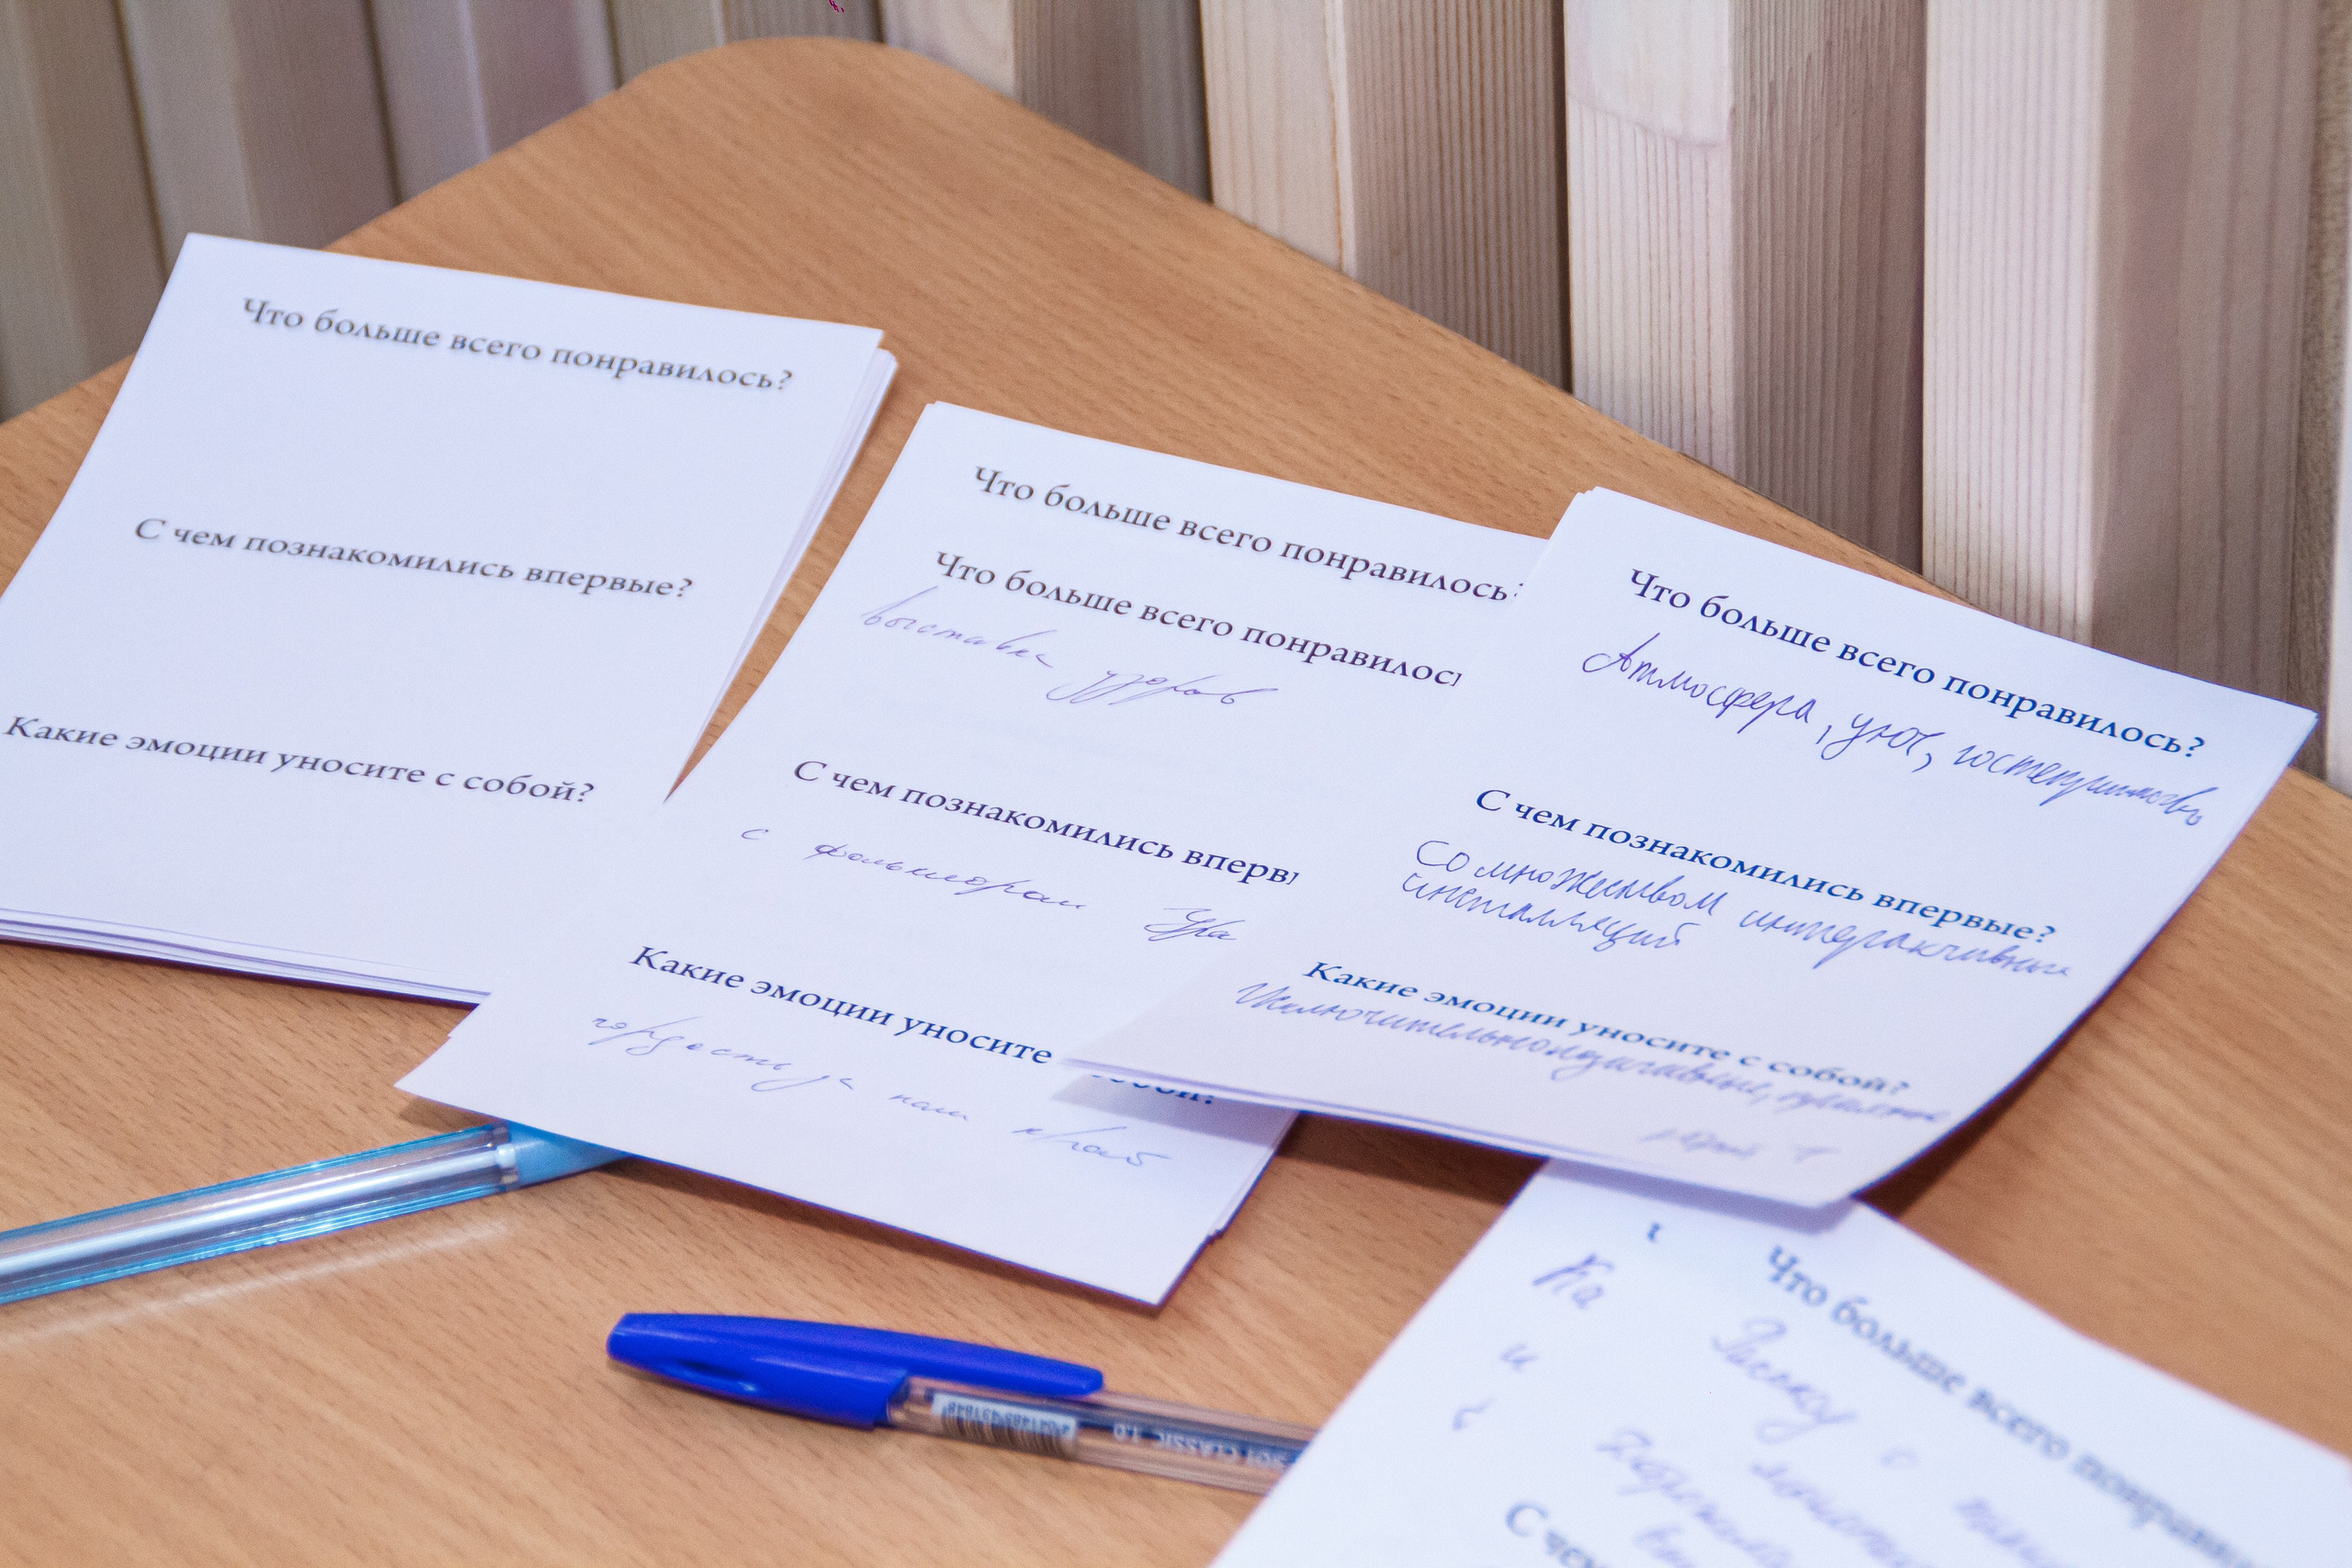 Что больше всего понравилось?
С чем познакомились впервые?
Какие эмоции уносите с собой?
Что больше всего понравилось?
Что больше всего понравилос
выставка
С чем познакомились вперв
с фольклором Ура
Какие эмоции уносите собой?
гордость за наш край
Что больше всего понравилось?
Атмосфера, уют, гостеприимство
С чем познакомились впервые?
Со множеством интерактивных
инсталляций
Какие эмоции уносите с собой?
Исключительно позитивные,
Что больше всего понрави
На
и
С чем
CLASSIC 1.0
4041485431848